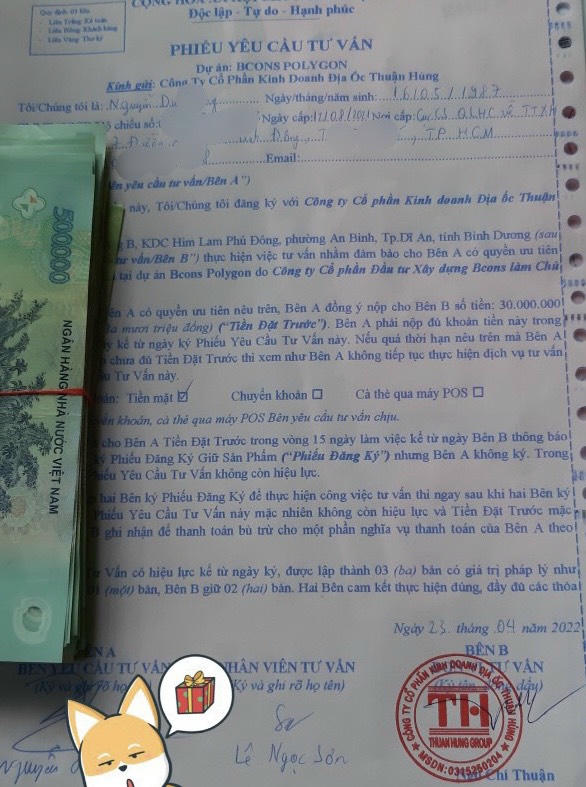 Quy định 03 liên
Liên Trắng Kế toán
Liên Hồng Khách hàng
Liên Vàng Thư ký
CỘNG HÒA XÃ
Độc lập - Tự do - Hạnh phúc
PHIẾU YÊU CẦU TƯ VẤN
Dự án: BCONS POLYGON
Kính gửi: Công Ty Cổ Phần Kinh Doanh Địa Ốc Thuận Hùng
Tôi/Chúng tôi là: Nguyễn Du Ngày/tháng/năm sinh: 16/05/1987
chiếu số: Ngày cấp: Nơi cấp: Cục CS QLHC về TTXH
Đông, T TP HCM
Email:
ên yêu cầu tư vấn/Bên A”)
này, Tôi/Chúng tôi đăng ký với Công ty Cổ phần Kinh doanh Địa ốc Thuận
g B, KDC Him Lam Phú Đông, phường An Bình, Tp.Dĩ An, tỉnh Bình Dương (sau
tư vấn/Bên B”) thực hiện việc tư vấn nhằm đảm bảo cho Bên A có quyền ưu tiên
tại dự án Bcons Polygon do Công ty Cổ phần Đầu tư Xây dựng Bcons làm Chủ
ên A có quyền ưu tiên nêu trên, Bên A đồng ý nộp cho Bên B số tiền: 30.000.000
a mươi triệu đồng) (“Tiền Đặt Trước”). Bên A phải nộp đủ khoản tiền này trong
y kể từ ngày ký Phiếu Yêu Cầu Tư Vấn này. Nếu quá thời hạn nêu trên mà Bên A
chưa đủ Tiền Đặt Trước thì xem như Bên A không tiếp tục thực hiện dịch vụ tư vấn
u Tư Vấn này.
án: Tiền mặt ☑ Chuyển khoản ☐ Cà thẻ qua máy POS ☐
yển khoản, cà thẻ qua máy POS Bên yêu cầu tư vấn chịu.
cho Bên A Tiền Đặt Trước trong vòng 15 ngày làm việc kể từ ngày Bên B thông báo
ý Phiếu Đăng Ký Giữ Sản Phẩm (“Phiếu Đăng Ký”) nhưng Bên A không ký. Trong
iếu Yêu Cầu Tư Vấn không còn hiệu lực.
hai Bên ký Phiếu Đăng Ký để thực hiện công việc tư vấn thì ngay sau khi hai Bên ký
Phiếu Yêu Cầu Tư Vấn này mặc nhiên không còn hiệu lực và Tiền Đặt Trước mặc
ghi nhận để thanh toán bù trừ cho một phần nghĩa vụ thanh toán của Bên A theo
Tư Vấn có hiệu lực kể từ ngày ký, được lập thành 03 (ba) bản có giá trị pháp lý như
01 (một) bản, Bên B giữ 02 (hai) bản. Hai Bên cam kết thực hiện đúng, đầy đủ các thỏa
Ngày 23 tháng 04 năm 2022
ÊN A BÊN B
BÊN YÊU CẦU TƯ VẤN NHÂN VIÊN TƯ VẤN TƯ VẤN
(Ký và ghi rõ họ (Ký và ghi rõ họ tên) (Ký tên dấu)
Nguyễn Lê Ngọc Sơn Chí Thuận
CÔNG TY CỔ PHẦN KINH DOANH ĐỊA ỐC THUẬN HÙNG
TH
THUAN HUNG GROUP
MSDN:0315250204
500000
NGÂN HÀNG NHÀ NƯỚC VIỆT NAM